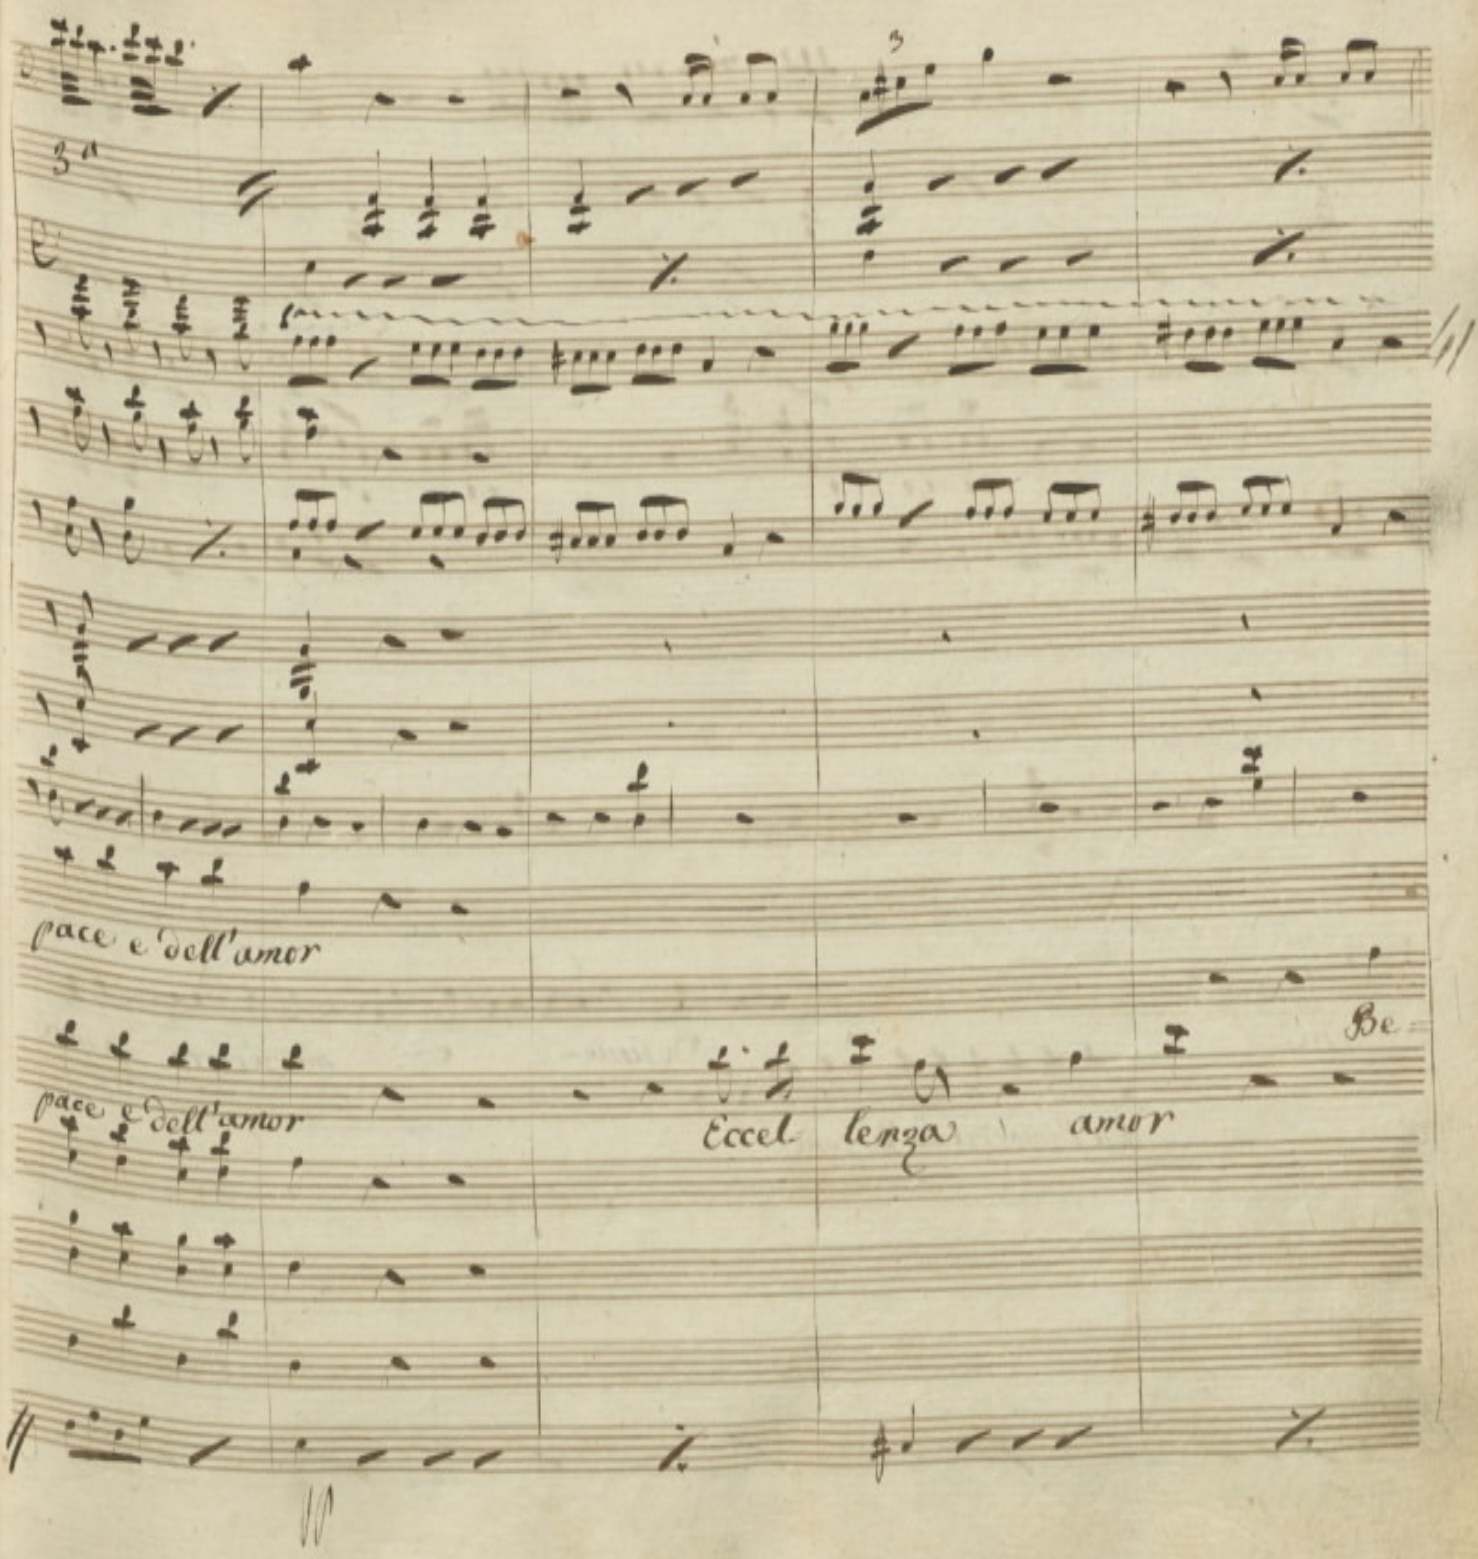 3
3ª
pace e dell'amor
Be=
pace e dell'amor Eccel lenza amor